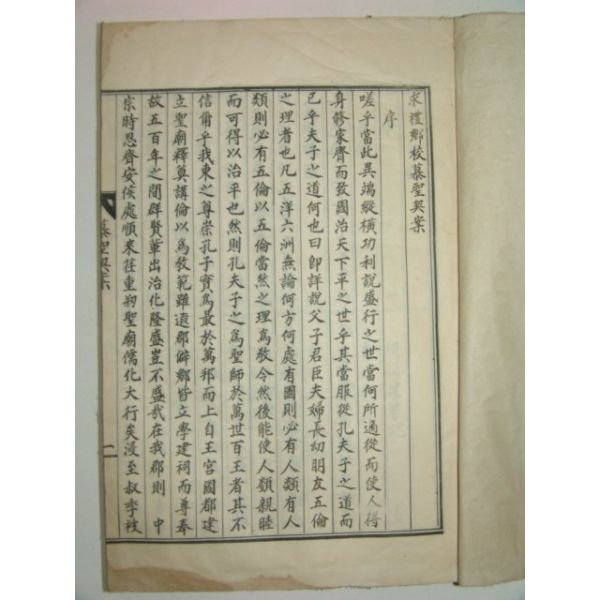 求禮鄉校慕聖契案
序
嗟乎當此異端縱橫功利說盛行之世當何所適從而使人得
身修家齊而致國治天下平之世乎其當服從孔夫子之道而
已乎夫子之道何也曰卽詳說父子君臣夫婦長幼朋友五倫
之理者也凡五洋六洲無論何方何處有國則必有人類有人
類則必有五倫以五倫當然之理爲敎令然後能使人類親睦
而可得以治平也然則孔夫子之爲聖師於萬世百王者其不
信甫乎我東之尊崇孔子實爲最於萬邦而上自王宮國郡建
立聖廟釋奠講倫以爲敎範雖遠郡僻鄉皆立學建祠而尊奉
故五百年之間群賢輩出治化隆盛豈不盛哉在我郡則 中
宗時思齋安侯處順來莅重剏聖廟儒化大行矣浸至叔季被
慕聖契案
二